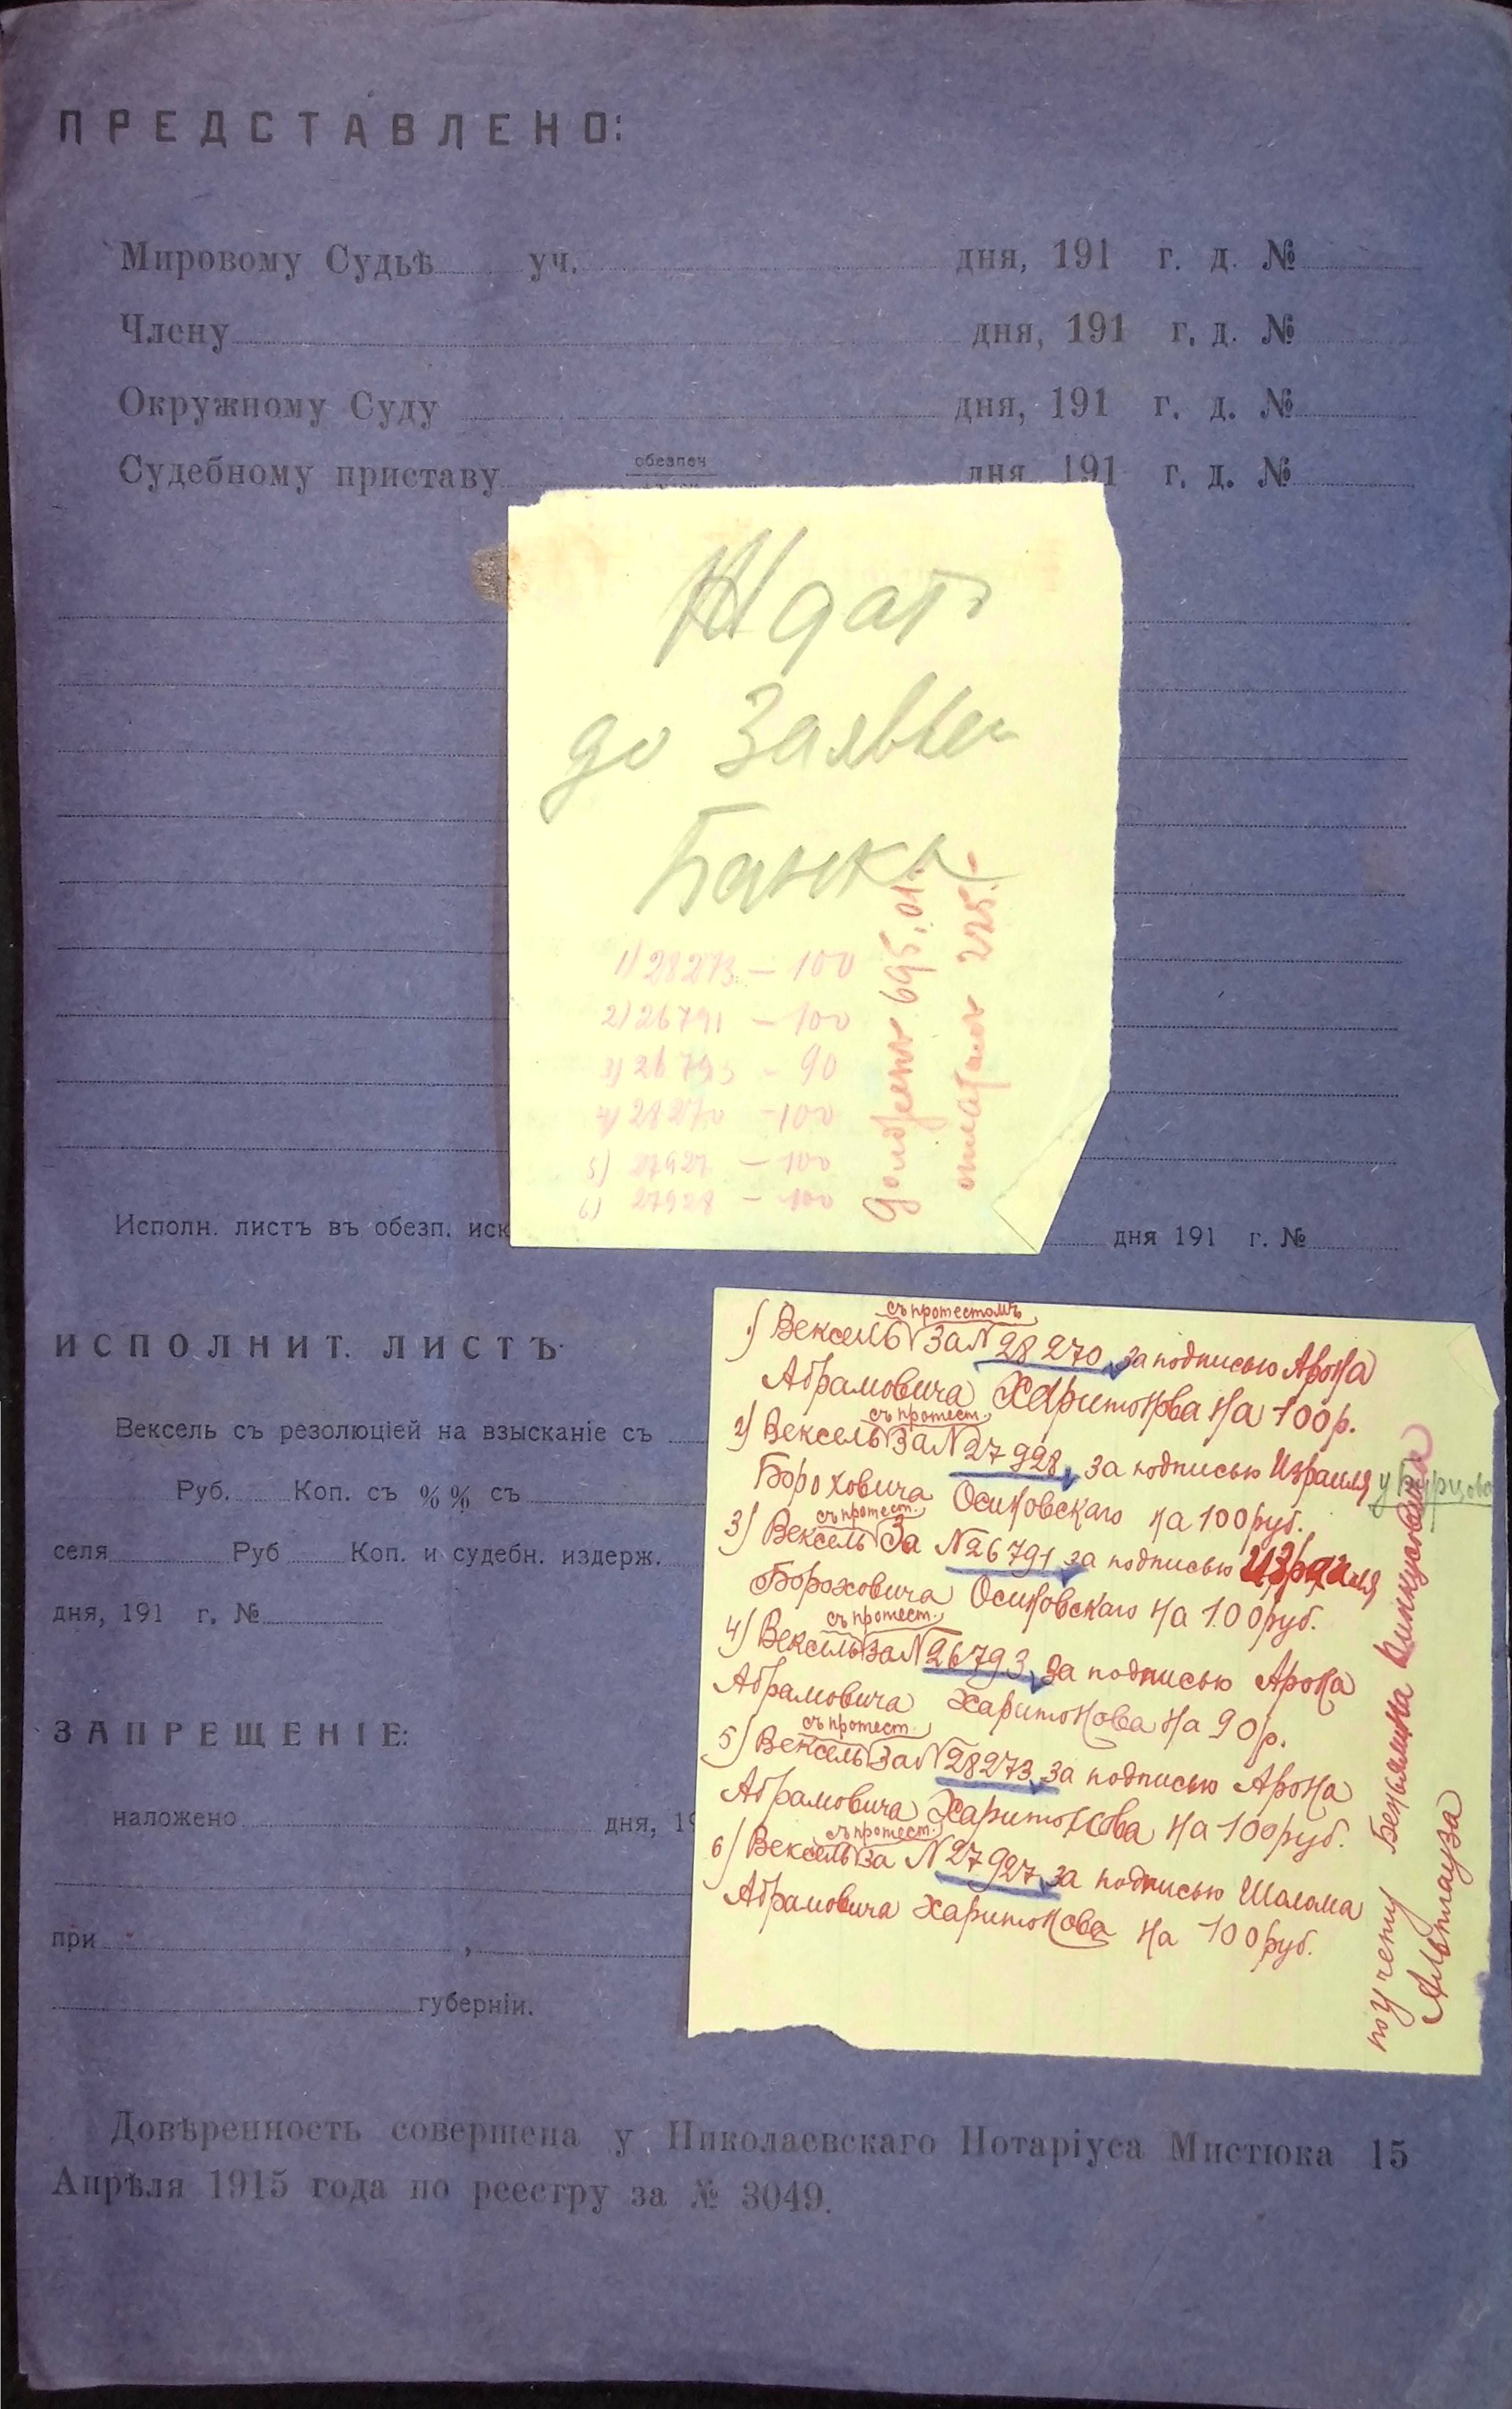 ПРЕДСТАВЛЕНО:
Мировому Судьѣ уч. дня, 191 г. д. №
Члену дня, 191 г. д. №
Окружному Суду дня, 191 г. д. №
Судебному приставу обезпеч дня 191 г. д. №
Ждат
до Заявлен
Банка
1) 28273 — 100
2) 26791 — 100
3) 26793 — 90
4) 28270 — 100
5) 27927 — 100
6) 27928 — 100
должен 695,01.
225.-
Исполн. листъ въ обезп. иск дня 191 г. №
ИСПОЛНИТ. ЛИСТЪ
Вексель съ резолюціей на взысканіе съ
Руб. Коп. съ %% съ
селя Руб Коп. и судебн. издерж.
дня, 191 г. №
ЗАПРЕЩЕНІЕ:
наложено дня, 19
при ,
губерніи.
съ протестомъ
1) Вексель за N 28270, за подписью Арона
Абрамовича Харитонова на 100 р.
съ протест.
2) Вексель за N 27928, за подписью Израиля
у Бурцова
Бороховича Осиновскаго на 100 руб.
съ протест.
3) Вексель за N 26791 за подписью Израиля
Бороховича Осиновскаго на 100 руб.
съ протест.
4) Вексель за N 26793, за подписью Арона
Абрамовича Харитонова на 90 р.
съ протест.
5) Вексель за N 28273, за подписью Арона
Абрамовича Харитонова на 100 руб.
съ протест.
6) Вексель за N 27927, за подписью Шалома
Абрамовича Харитонова на 100 руб.
по учету Беньямина Пинкусовича
Альтгауза
Довѣренность совершена у Николаевскаго Нотаріуса Мистюка 15
Апрѣля 1915 года по реестру за № 3049.